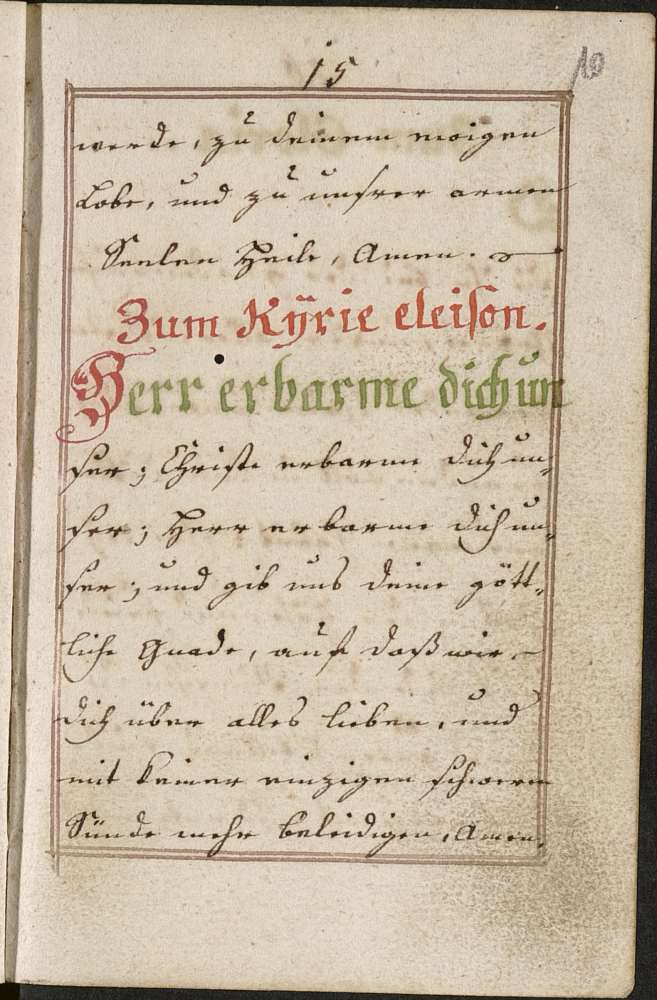 15
10
werde, zu deinem ewigen
Lobe, und zu unsrer armen
Seelen Heile, Amen.
Zum Kÿrie eleison.
Herr erbarme dich un
ser; Christe erbarme dich un„
ser; Herr erbarme dich un„
ser; und gib uns deine gött„
liche Gnade, auf daß wir
dich über alles lieben, und
mit keiner einzigen schweren
Sünde mehr beleidigen, Amen.